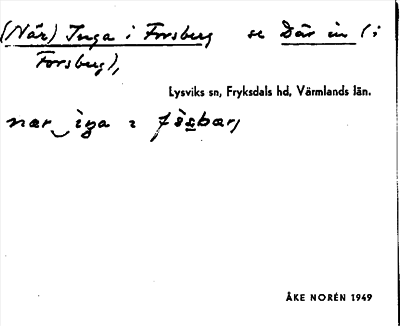 (När) Inga i Forsberg se Där in (i
Forsberg),
Lysviks sn, Fryksdals hd, Värmlands län.
nær iga i
ÅKE NORÉN 1949